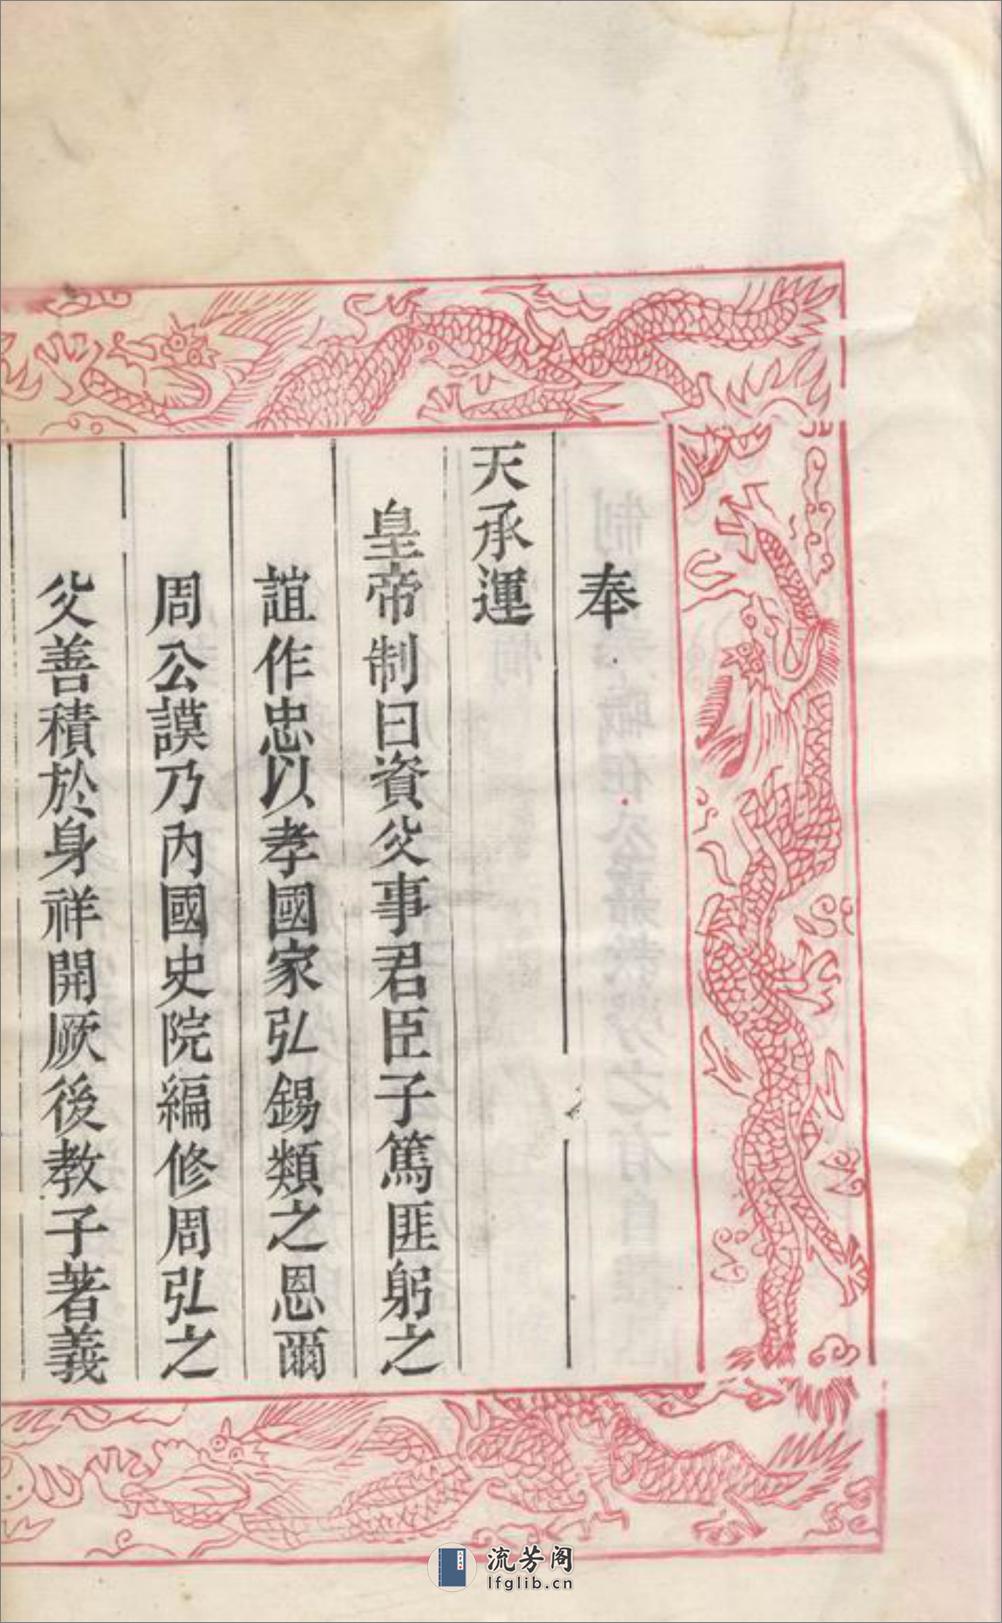 奉
天承運
皇帝制曰資父事君臣子篤匪躬之
誼作忠以孝國家弘錫類之恩爾
周公謨乃內國史院編修周弘之
父善積於身祥開厥後教子著義
流芳阁
lfglib.cn